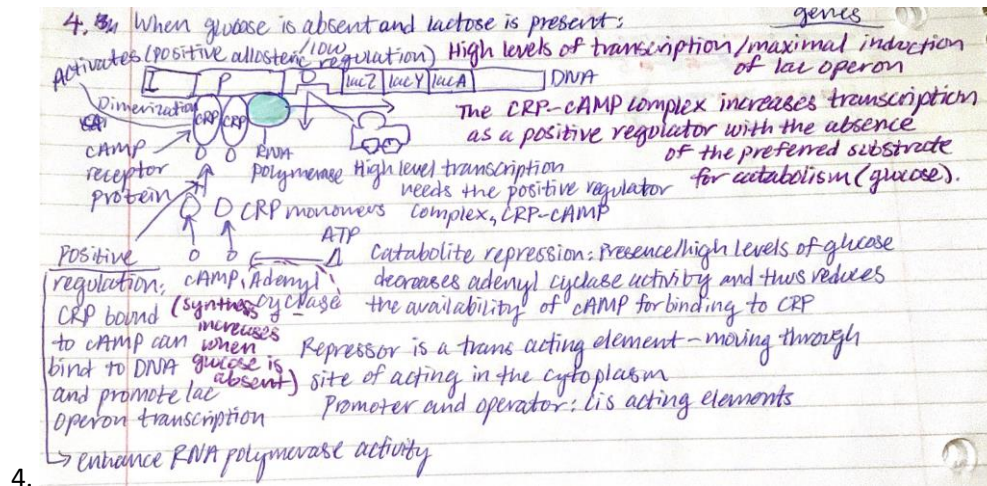 genes
4. When glucose is absent and lactose is present:
Activates (positive allosteric/low regulation)
High levels of transcription/maximal induction
of lac operon
I P O lacZ lacY lacA DNA
Dimerization
CRP CRP
The CRP-cAMP complex increases transcription
as a positive regulator with the absence
of the preferred substrate
for catabolism (glucose).
cAMP
receptor
protein
RNA
polymerase
High level transcription
needs the positive regulator
complex, CRP-cAMP
CRP monomers
ATP
cAMP, Adenyl
cyclase
(synthesis
increases
when
glucose is
absent)
Positive
regulation:
CRP bound
to cAMP can
bind to DNA
and promote lac
operon transcription
→ enhance RNA polymerase activity
Catabolite repression: Presence/high levels of glucose
decreases adenyl cyclase activity and thus reduces
the availability of cAMP for binding to CRP
Repressor is a trans acting element - moving through
site of acting in the cytoplasm
Promoter and operator: Cis acting elements
4.